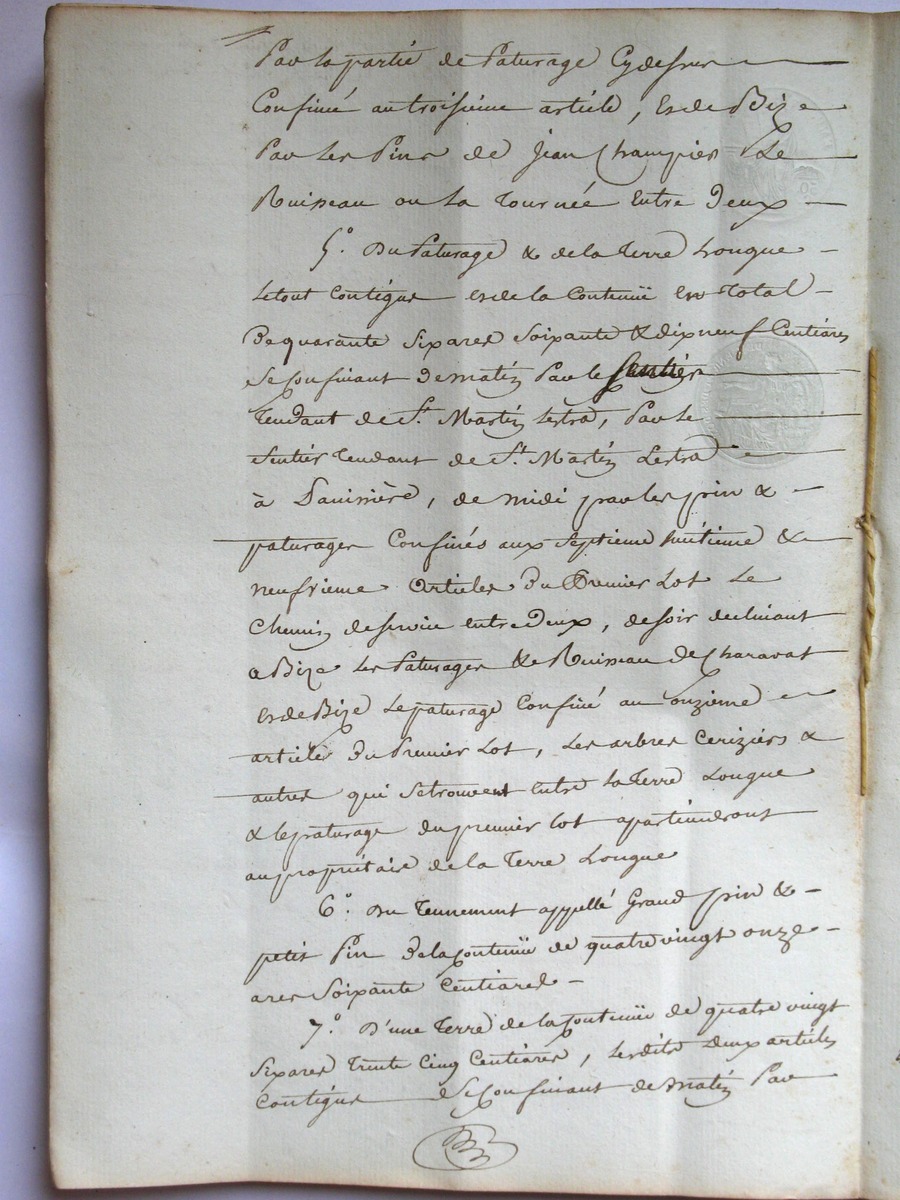 Par la partie de Paturage Cydessus
Confiné au troisième article, Et de Bize
Par les Pins de jean Champier Le
Ruisseau ou la Tournée Entre Deux
5.° Du Paturage & de la Terre Longue
le tout Contigus et de la Contenüe en Total
De quarante Six ares Soixante & dix neuf Centiares
Se Confinant De matin Par le Sentier
Tendant de S.t Martin Lestra, Par Le
Sentier Tendant de S.t Martin Lestra
à Laurière, de midi par les pins &
paturages Confinés aux Septieme huitieme &
neufvieme Articles Du Premier Lot Le
Chemin deservice entre Deux, de soir declinant
a Bize Les Paturages & le Ruisseau de Charavat
et de Bize Le paturage Confiné au onzieme
article Du Premier Lot, Les arbres Ceriziers &
autres qui Se trouvent Entre la Terre Longue
& le paturage du premier lot apartiendront
au propriétaire de la Terre Longue
6.° Du Tennement appellé Grand pin &
petit Pin De la Contenüe de quatre vingt onze
ares Soixante Centiares
7.° D'une Terre de la Contenüe de quatre vingt
Six ares Trente Cinq Centiares, Lesdits Deux articles
Contigus Se Confinant de matin Par